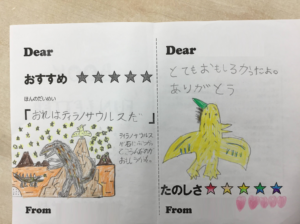 Dear
おすすめ ★★★★★
ほんのだいめい
「おれはティラノサウルスだ」
ティラノサウルス
From
Dear
とてもおもしろかったよ。
ありがとう
たのしさ★★★★★
From